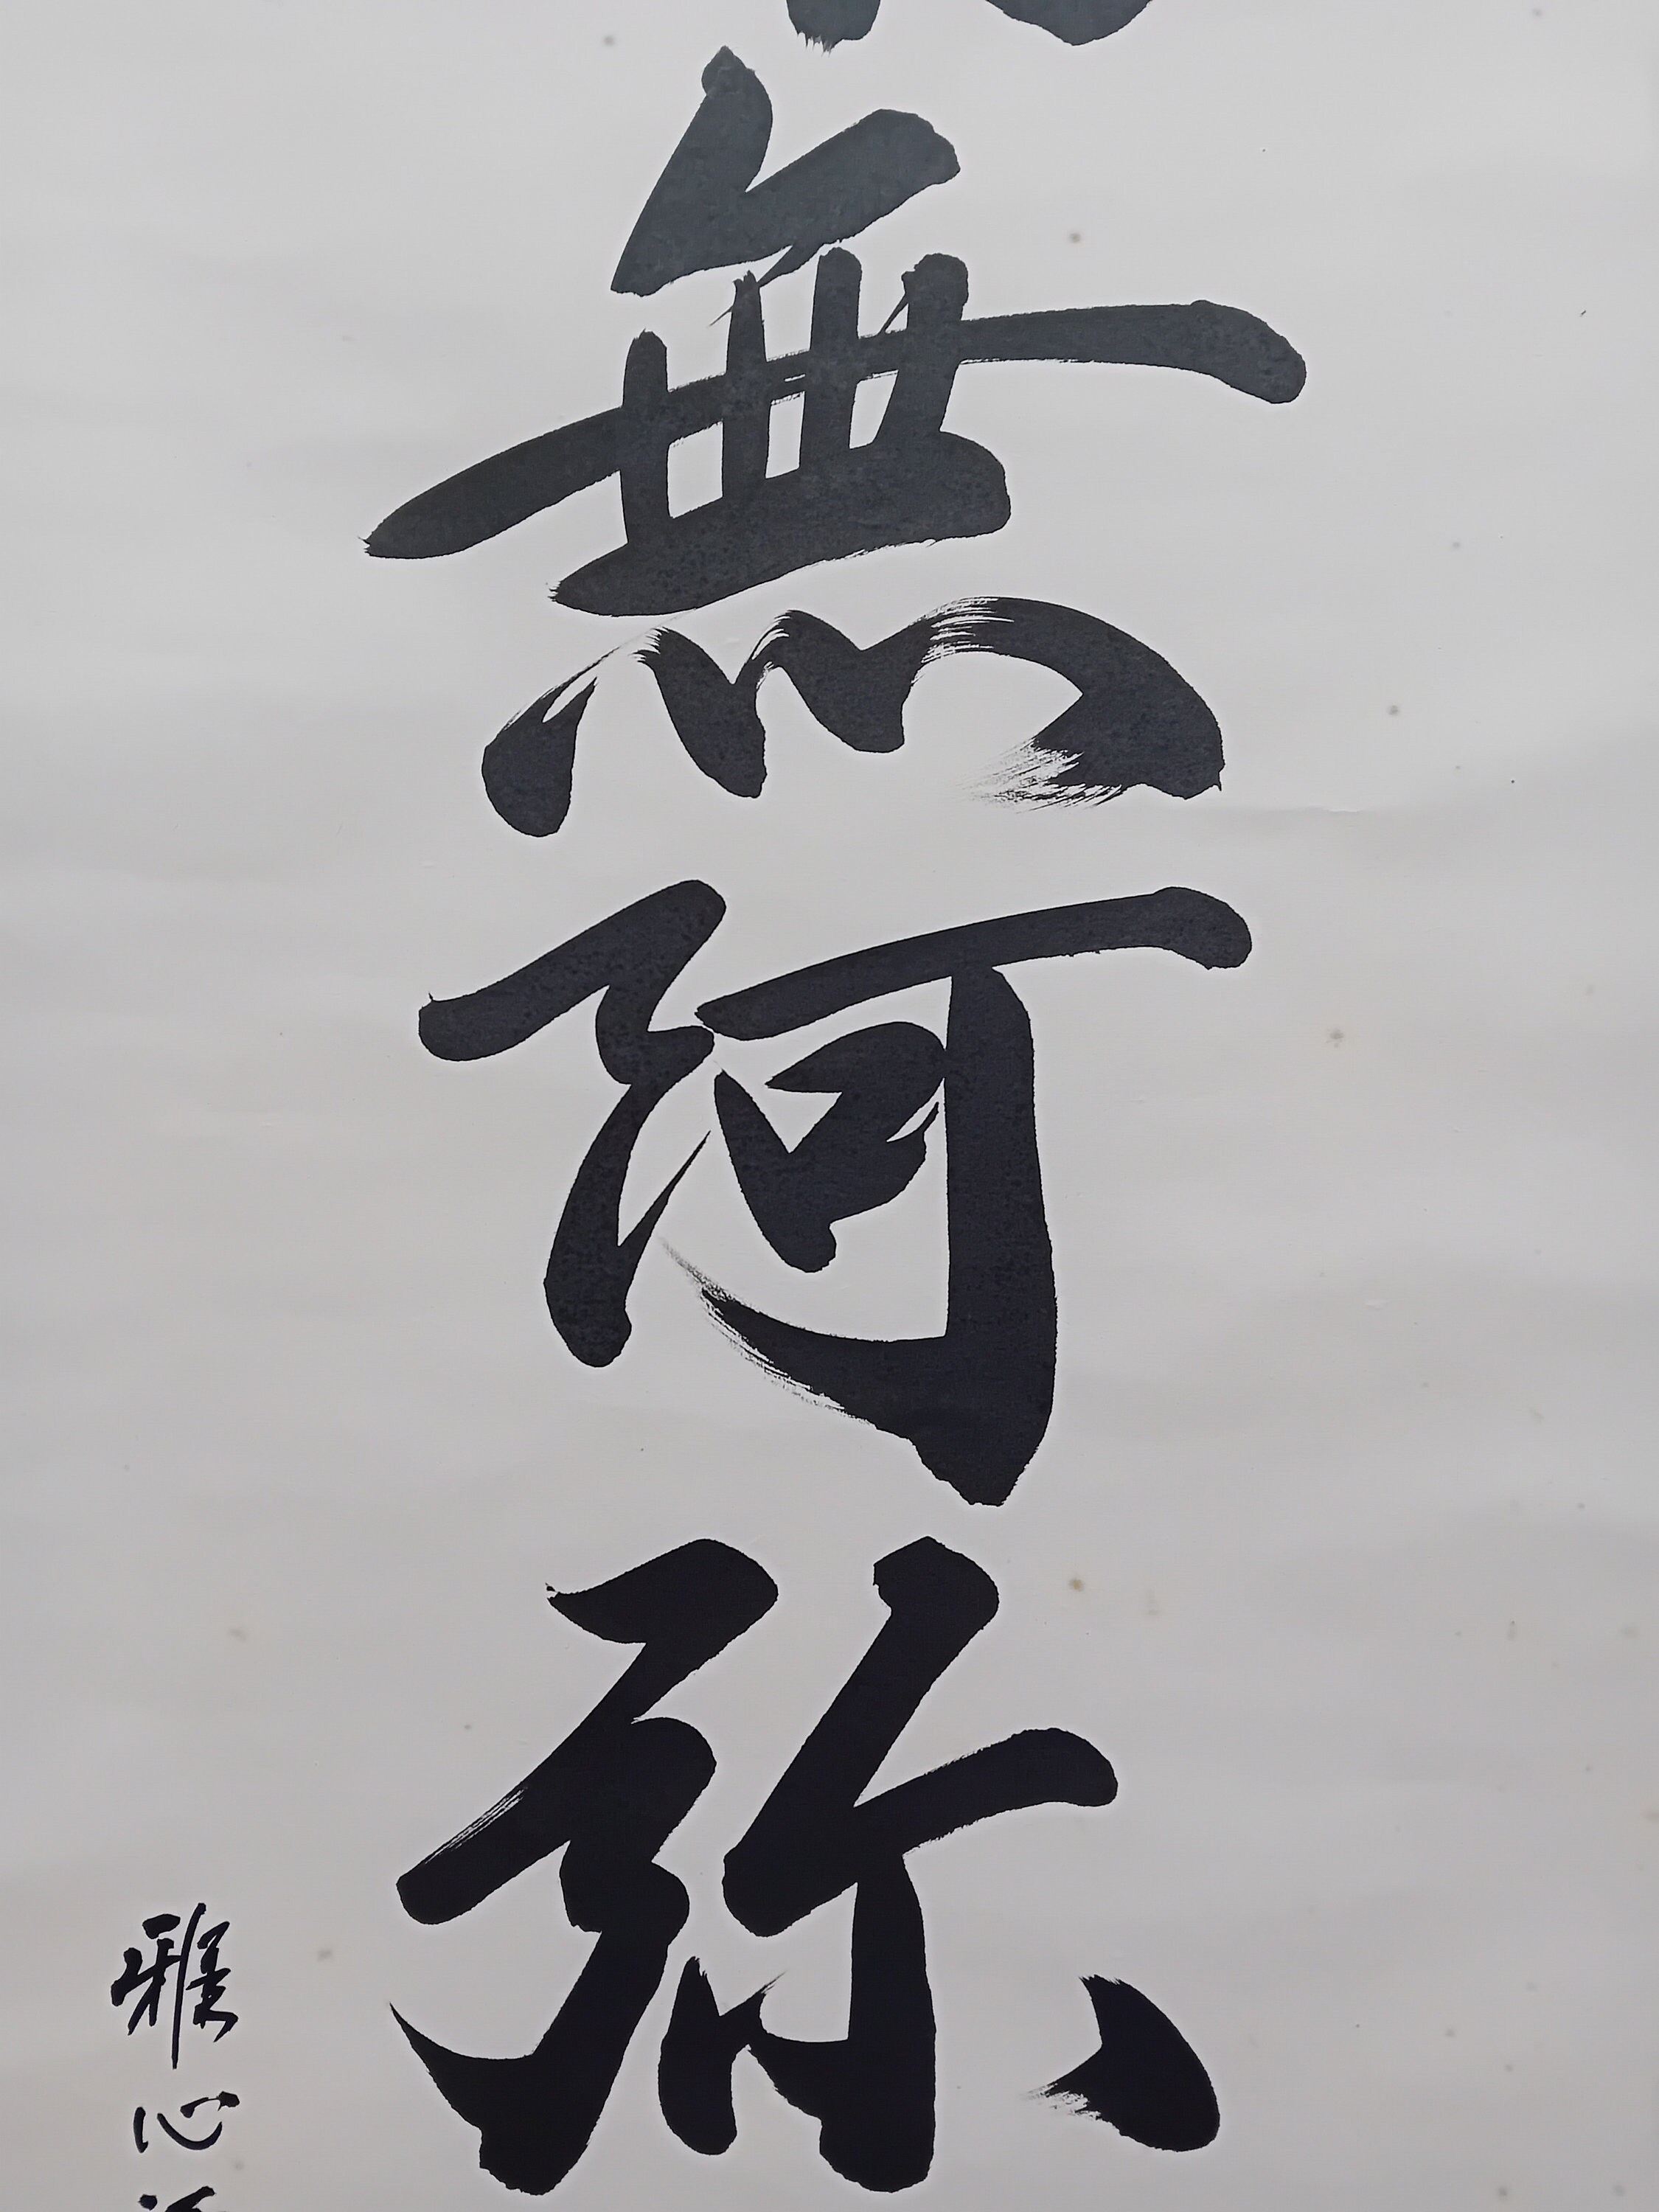 無阿弥
雅心